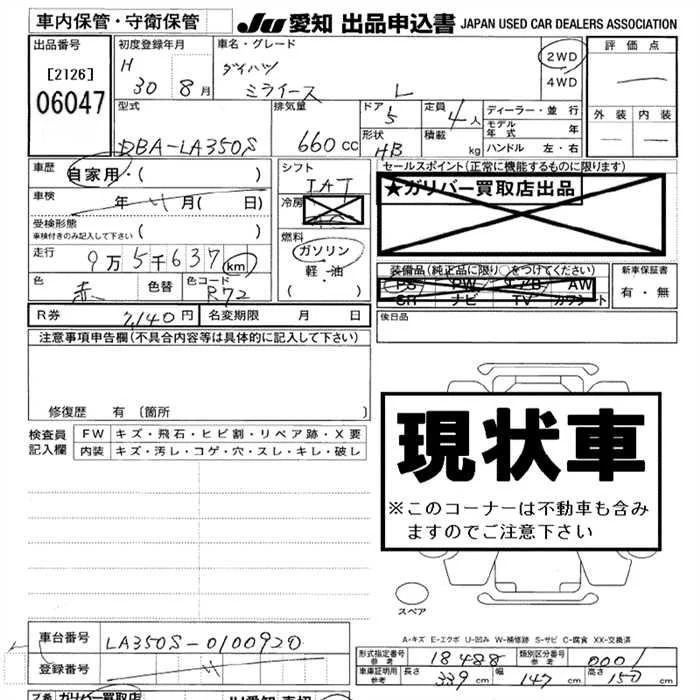 車内保管・守衛保管
JU 愛知 出品申込書 JAPAN USED CAR DEALERS ASSOCIATION
出品番号 [2126] 06047
初度登録年月 H 30年 8月
車名・グレード ダイハツ ミライース L
2WD 4WD
評価点 —
外装 — 内装 —
型式 DBA-LA350S
排気量 660 cc
ドア 5 形状 HB
定員 4人 積載 kg
ディーラー・並行
モデル年式 年
ハンドル 左・右
車歴 自家用・( )
車検 年 月( 日)
受検形態 車検付きのみ記入して下さい ( )
走行 9万5千637 km
色 赤 色替 色コード R72
シフト IAT
冷房
燃料 ガソリン 軽・油 ( )
セールスポイント(正常に機能するものに限ります)
★ガリバー買取店出品
装備品(純正品に限り○をつけてください)
PS PW エアB AW
SR ナビ TV カワシート
新車保証書 有・無
R券 7,140円 名変期限 月 日
後日品
注意事項申告欄(不具合内容等は具体的に記入して下さい)
修復歴 有 〔箇所 〕
検査員記入欄
FW キズ・飛石・ヒビ割・リペア跡・X要
内装 キズ・汚レ・コゲ・穴・スレ・キレ・破レ
現状車
※このコーナーは不動車も含みますのでご注意下さい
スペア
A-キズ E-エクボ U-凹み W-補修跡 S-サビ C-腐食 XX-交換済
車台番号 LA350S-0100920
登録番号
形式指定番号 参考 18488 類別区分番号 参考 0001
車庫証明用 参考 長さ 339 cm 幅 147 cm 高さ 150 cm
ガリバー買取店